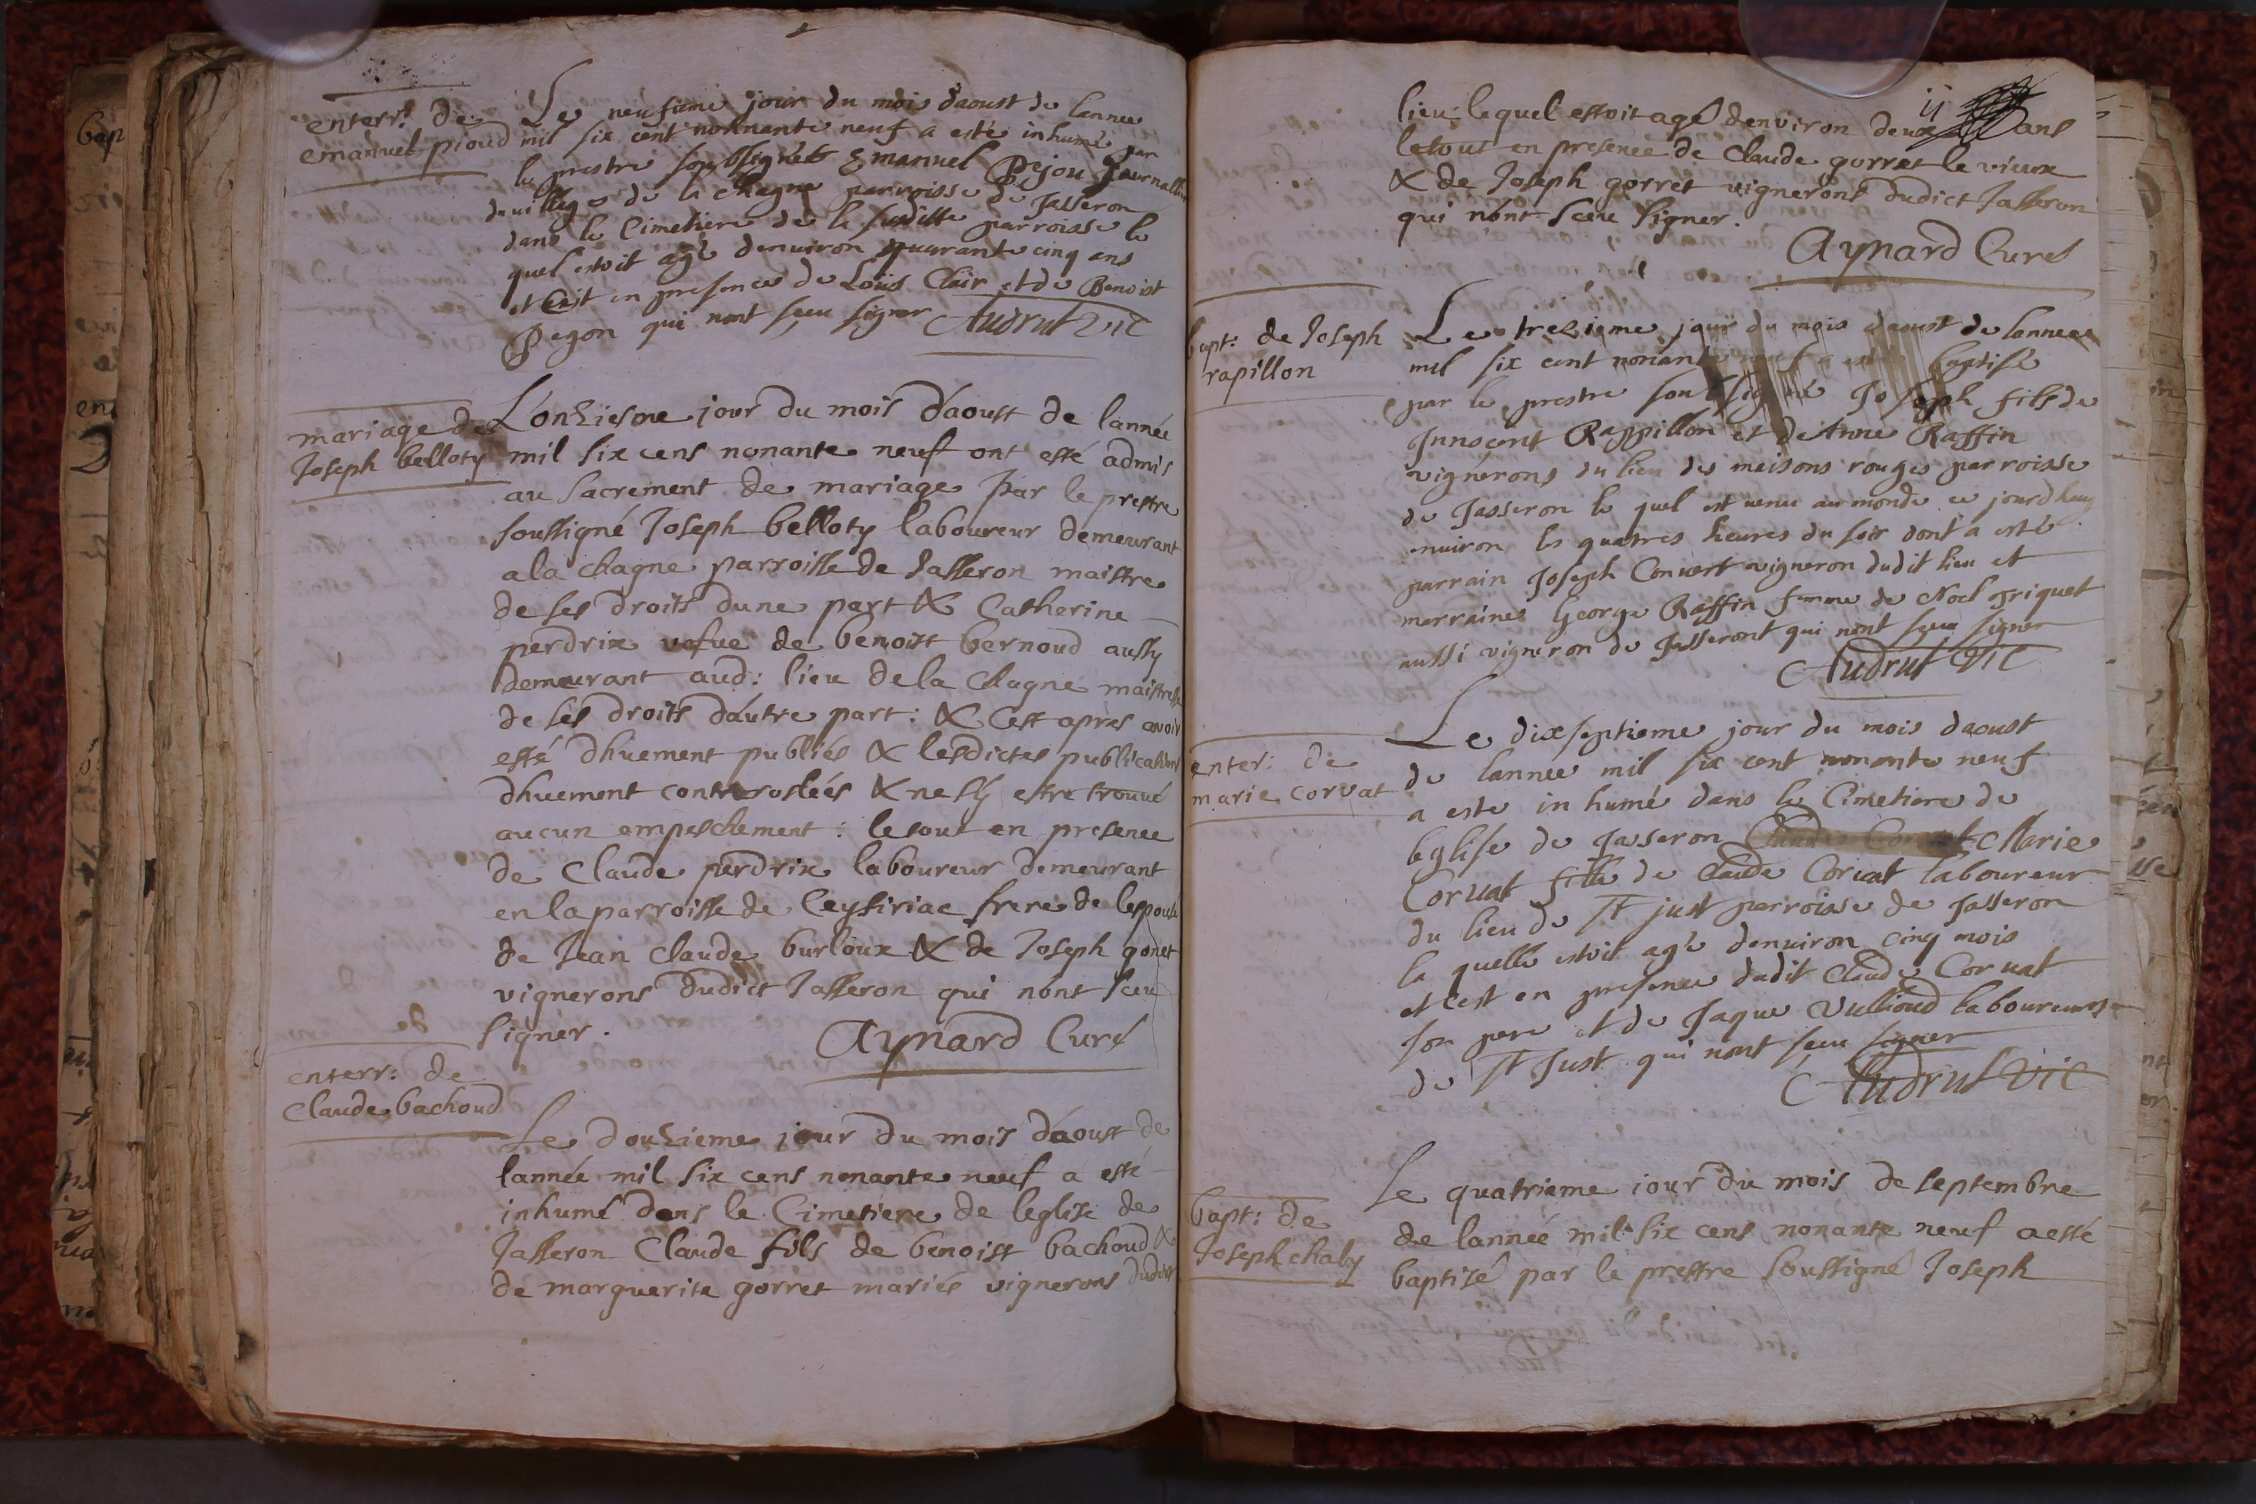 enterr: de
emanuel pioud
Le neufieme jour du mois daoust de lannee
mil six cent nonnante neuf a esté inhumé par
le prestre soubsigné Emanuel Pejou journallier
du village de la Chagne parroisse de Jasseron
dans le Cimetiere de la susditte parroisse le
quel estoit agé denviron quarante cinq ans
et C'est en presences de Loüis Clair et de Benoist
Pegon qui nont sçeu signer Audrut Vic
mariage de
Joseph belloty
L'onziesme jour du mois d'aoust de l'année
mil six cens nonante neuf ont esté admis
au Sacrement de mariage par le prestre
soussigné Joseph belloty laboureur demeurant
a la chagne parroisse de Jasseron maistre
de ses droits d'une part & Catherine
perdrix vefve de benoist bernoud aussy
demeurant aud: lieu de la Chagne maistresse
de ses droits d'autre part: & C'est apres avoir
esté dhuement publiés & lesdictes publications
dhuement controslées & ne s'y estre trouvé
aucun empeschement: le tout en presence
de Claude perdrix laboureur demeurant
en la parroisse de Ceysiriac frere de lespouse
de Jean claude burloux & de Joseph gorret
vignerons dudict Jasseron qui n'ont sceu
signer. Aynard Curé
enterr: de
Claude bachoud
Le douzieme jour du mois d'aoust de
l'année mil six cens nonante neuf a esté
inhumé dans le Cimetiere de l'eglise de
Jasseron Claude fils de benoist bachoud &
de marguerite gorret mariés vignerons dudict
lieu lequel estoit agé denviron deux ans
le tout en presence de Claude gorret le vieux
& de Joseph gorret vignerons dudict Jasseron
qui n'ont sceu signer.
Aynard Curé
bapt: de Joseph
rapillon
Le trezieme jour du mois daoust de lannee
mil six cent nonante neuf a esté baptisé
par le prestre soubsigné Joseph fils de
Innocent Rappillon et de Anne Raffin
vignerons du lieu des maisons rouges parroisse
de Jasseron le quel est venu au monde ce jourdhuy
environ les quatres heures du soir dont a esté
parrain Joseph Convert vigneron dudit lieu et
marraine George Raffin femme de Noel priquet
aussi vigneron de Jasseront qui nont sçeu signer
Audrut Vic
enter: de
marie corvat
Le dixseptieme jour du mois daoust
de lannee mil six cent nonante neuf
a esté inhumé dans le Cimetiere de
leglise de Jasseron Marie
Corvat fille de Claude Corvat laboureur
du lieu de St just parroisse de Jasseron
la quelle estoit agé denviron cinq mois
et cest en presence dudit Claude Corvat
son pere et de Jaque Vullioud laboureurs
de St Just qui nont sçeu signer
Audrut Vic
bapt: de
Joseph chaby
Le quatrieme jour du mois de septembre
de l'année mil six cens nonante neuf a esté
baptisé par le prestre soussigné Joseph